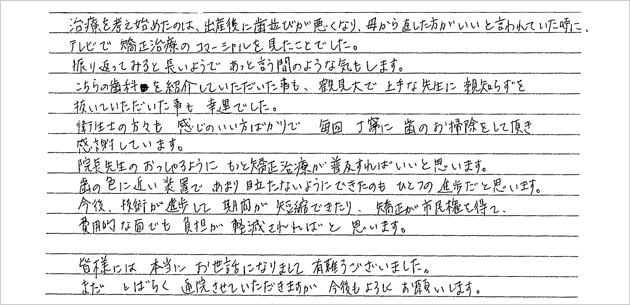 治療を考え始めたのは、出産後に歯並びが悪くなり、母から直した方がいいと言われていた時に、
テレビで矯正治療のコマーシャルを見たことでした。
振り返ってみると長いようであっと言う間のような気もします。
こちらの歯科を紹介していただいた事も、鶴見大で上手な先生に親知らずを
抜いていただいた事も幸運でした。
衛生士の方々も感じのいい方ばかりで毎回丁寧に歯のお掃除をして頂き
感謝しています。
院長先生のおっしゃるようにもっと矯正治療が普及すればいいと思います。
歯の色に近い装置であまり目立たないようにできたのもひとつの進歩だと思います。
今後、技術が進歩して期間が短縮できたり、矯正が市民権を得て、
費用的な面でも負担が軽減されればと思います。
皆様には本当にお世話になりまして有難うございました。
まだしばらく通院させていただきますが今後もよろしくお願いします。